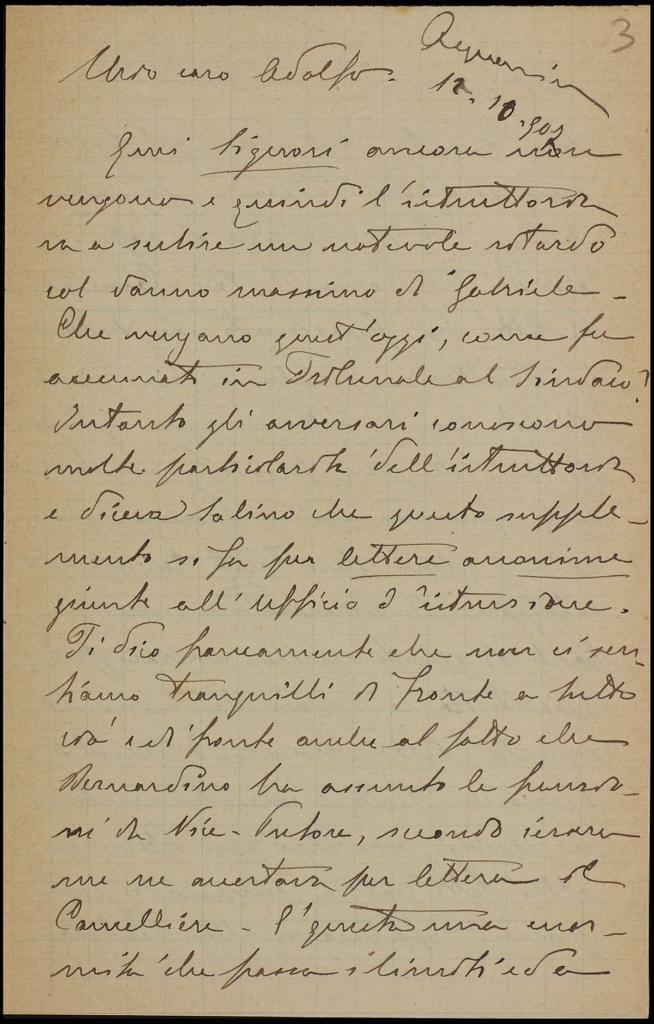 3
Mio caro Adolfo.
12-10-903
Quei signori ancora non
vengono e quindi l'istruttoria
va a subire un notevole ritardo
col danno massimo di Gabriele -
Che vengano quest'oggi, come fu
accennato in Tribunale al Sindaco?
Intanto gli avversari conoscono
molte particolarità dell'istruttoria
e diceva Salino che questo supple-
mento si fa per lettere anonime
giunte all'ufficio d'istruzione.
Ti dico francamente che non ci sen-
tiamo tranquilli di fronte a tutto
ciò e di fronte anche al fatto che
Bernardino ha assunto le funzio-
ni di Vice-Pretore, secondo iersera
me ne avvertava per lettera il
Cancelliere - È questa una enor-
mità che passa i limiti e da